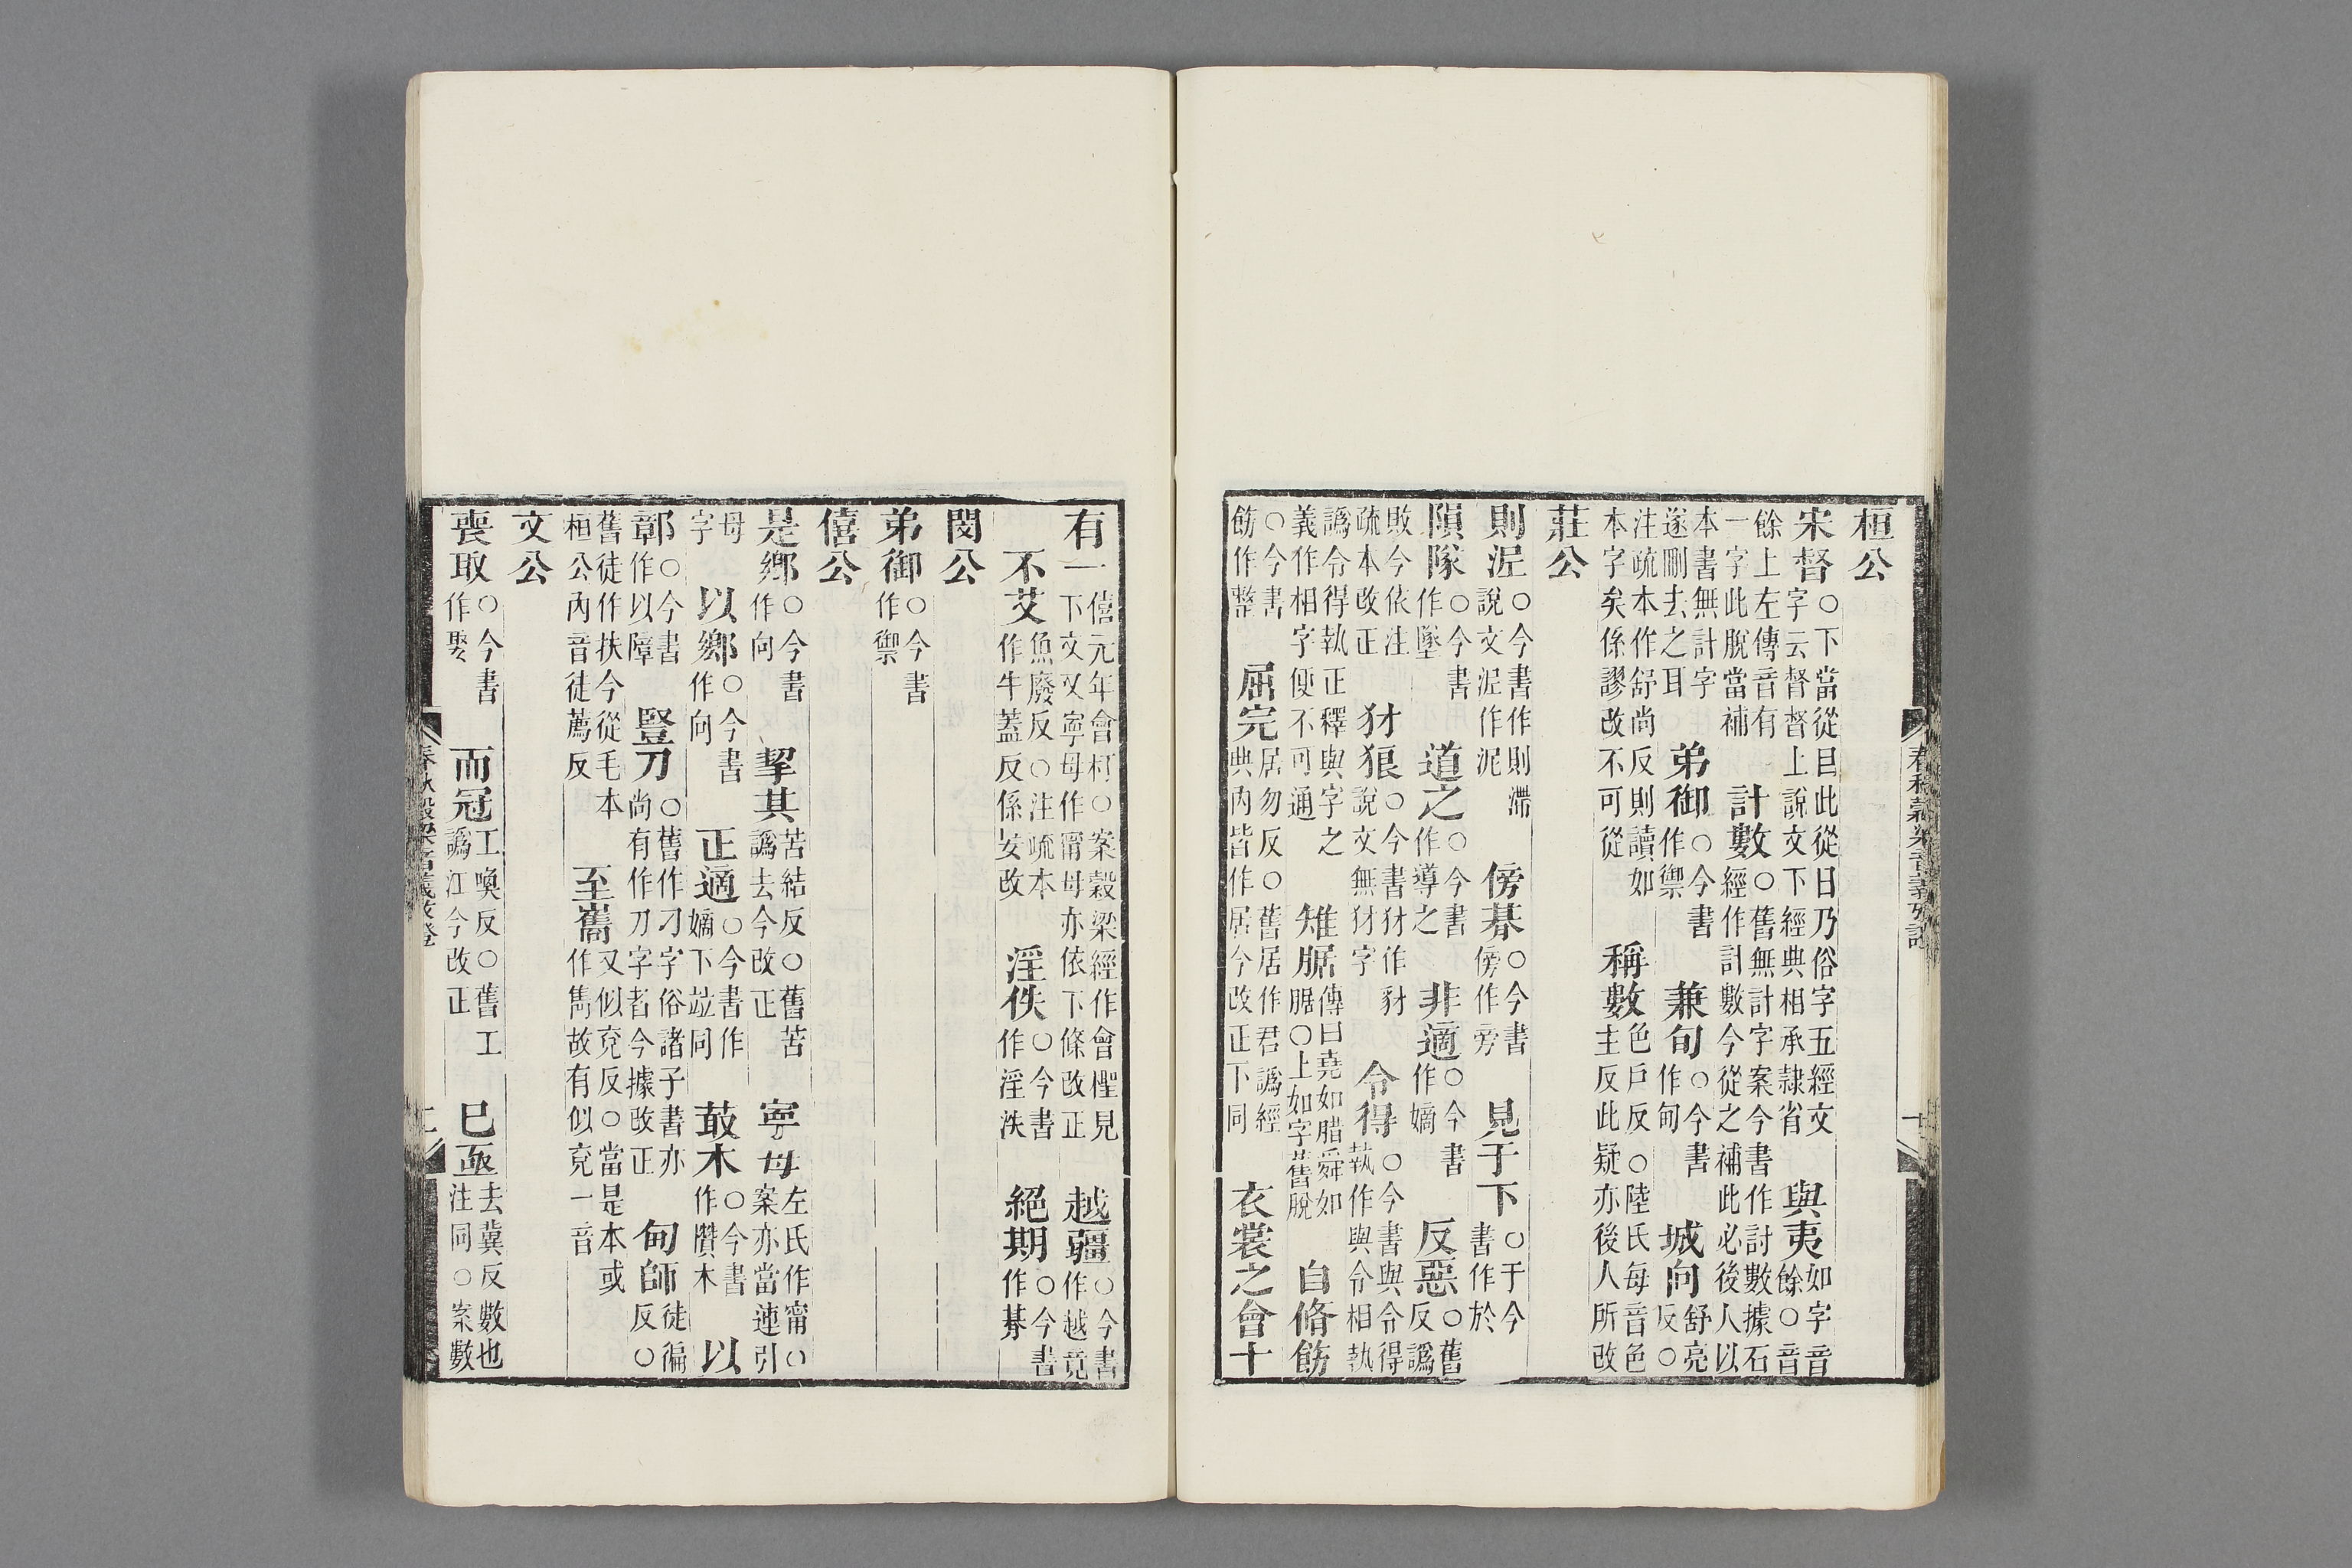 桓公
宋督○下當從目此從日乃俗字五經文字云督督上說文下經典相承隸省 與夷如字音餘○音
餘上左傳音有一字此脫當補 計數○舊無計字案今書作討數據石經作計數今從之補此必後人以
本書無計字遂刪去之耳 弟御○今書作禦 兼旬○今書作甸 城向舒亮反○
注疏本作舒尚反則讀如本字矣係謬改不可從 稱數色戶反○陸氏每音色主反此疑亦後人所改
莊公
則泥○今書作則滯說文泥作泥 傍朞○今書傍作旁 見于下○于今書作於
隕隊○今書作墜 道之○今書作導之 非適○今書作嫡 反惡○舊反譌
敗今依注疏本改正 犲狼○今書犲作豺說文無犲字 令得○今書與令得執作與令相執
譌令得執正釋與字之義作相字便不可通 雉腒傳曰堯如腊舜如腒○上如字舊脫 自脩飭
○今書飭作整 屈完居勿反○舊居作君譌經典內皆作居今改正下同 衣裳之會十
春秋穀梁音義攷證 十
有一僖元年會朾○案穀梁經作會檉見下文又寧母作甯母亦依下條改正 越疆○今書作越竟
不艾魚廢反○注疏本作牛蓋反係妄改 淫佚○今書作淫泆 絕期○今書作朞
閔公
弟御○今書作禦
僖公
是鄉○今書作向 挈其苦結反○舊苦譌去今改正 寧母左氏作甯○案亦當連引
母字 以鄉○今書作向 正適○今書作嫡下竝同 菆木○今書作欑木 以
鄣○今書作以障 豎刀○舊作刁字俗諸子書亦尚有作刀字者今據改正 甸師徒徧反○
舊徒作扶今從毛本桓公內音徒薦反 至巂又似兖反○當是本或作雋故有似兖一音
文公
喪取○今書作娶 而冠工喚反○舊工譌江今改正 已亟去冀反數也注同○案數
春秋穀梁音義攷證